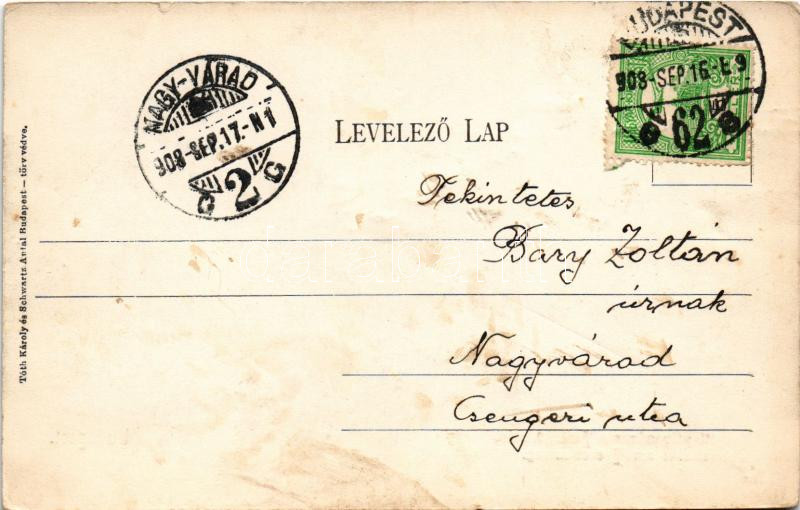 BUDAPEST
908-SEP.16.-E 9
62
NAGY-VÁRAD
908-SEP.17.-N1
G 2 G
LEVELEZŐ LAP
Tekintetes
Bary Zoltán
úrnak
Nagyvárad
Csengeri utca
Tóth Károly és Schwartz Antal Budapest — törv védve.